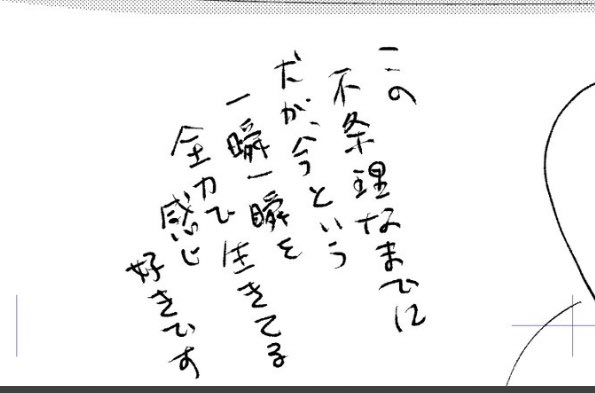 この
不条理なまでに
だが、今という
一瞬一瞬を
全力で生きてる
感じ
好きです